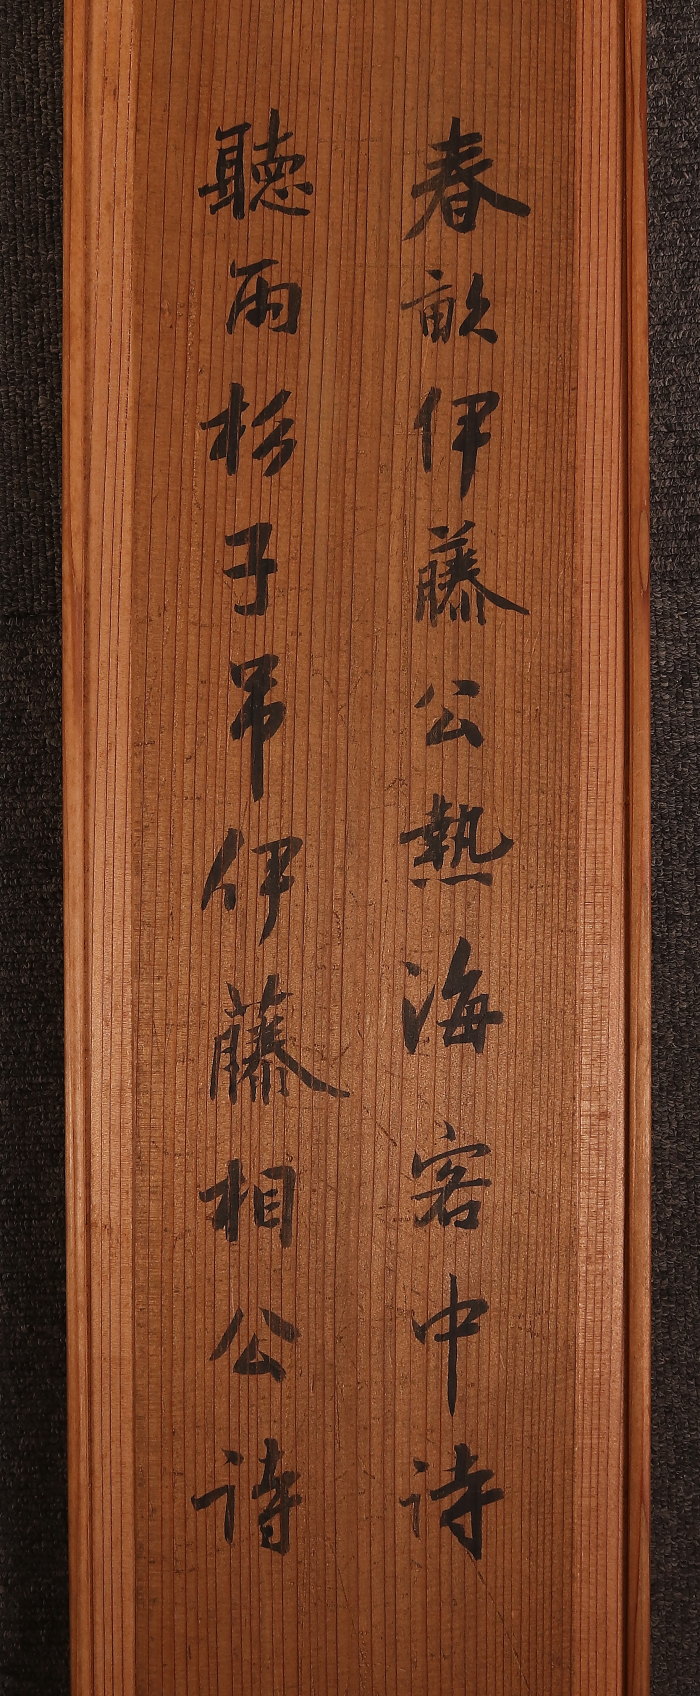 春畝伊藤公熱海客中詩
聽雨杉子弔伊藤相公詩